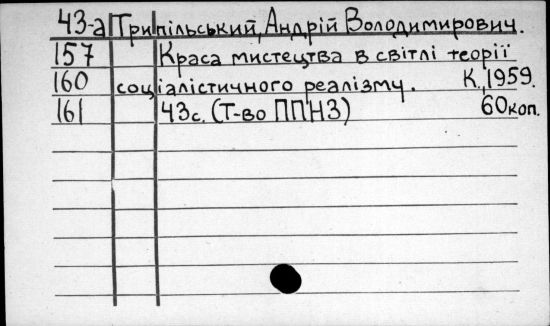 43-а Трипільський, Андрій Володимирович.
157 Краса мистецтва в світлі теорії
160 соціалістичного реалізму. К., 1959.
161 43с. (Т-во ППНЗ) 60коп.